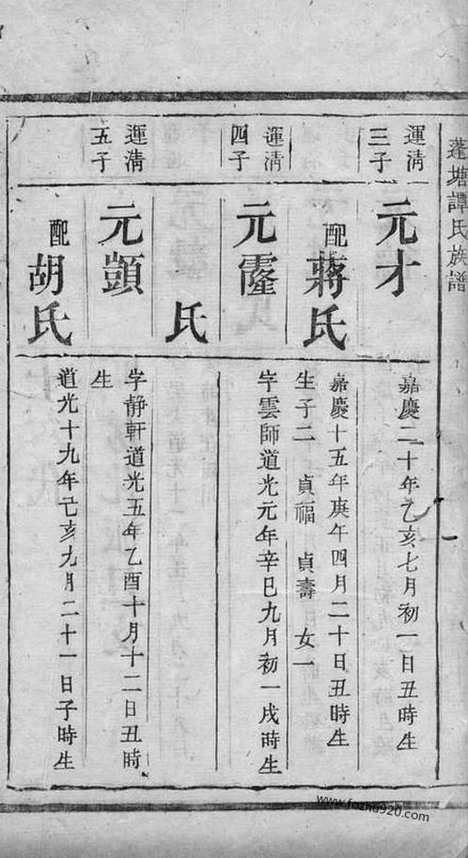 蓬塘譚氏族譜
運清
三子
元才
嘉慶二十年乙亥七月初一日丑時生
配蔣氏
嘉慶十五年庚午四月二十日丑時生
生子二 貞福 貞壽 女一
運清
四子
元霳
字雲師道光元年辛巳九月初一戌時生
氏
運清
五子
元顗
字静軒道光五年乙酉十月十二日丑時
生
配胡氏
道光十九年己亥九月二十一日子時生
www.fozhu920.com